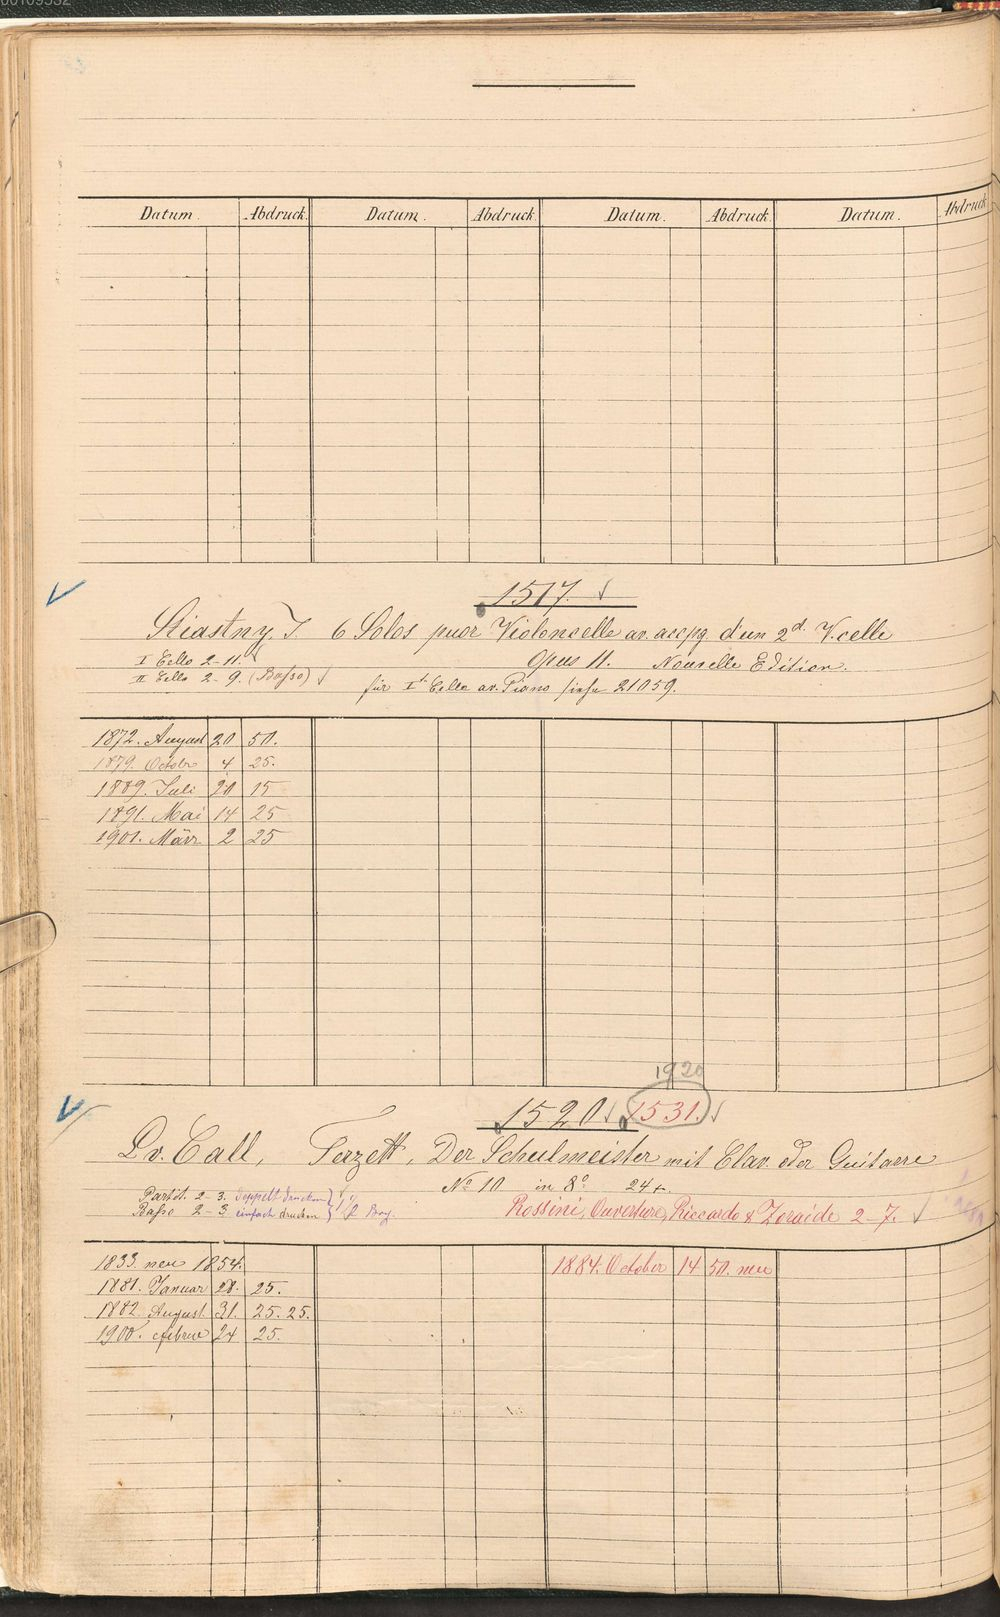 00109532
Datum. Abdruck. Datum. Abdruck. Datum. Abdruck. Datum. Abdruck.
1517.
Stiastny, J. 6 Solos puor Violoncelle av. accpg. d'un 2d. V.celle
I Cello 2-11.
Opus 11. Nouvelle Edition.
II Cello 2-9. (Basso)
für It. Cello av. Piano siehe 21059.
1872. August 20 50.
1879. October 4 25.
1889. Juli 20 15
1891. Mai 14 25
1901. März 2 25
1920
1520 1531.
L. v. Call, Terzett, Der Schulmeister mit Clav. oder Guitarre
No 10 in 8o 24 x.
Partit. 2-3. doppelt drucken
Basso 2-3 einfach drucken
Rossini, Ouverture, Riccardo & Zoraide 2-7.
1833. neu 1854.
1884. October 14 50. neu
1881. Januar 28. 25.
1882 August. 31. 25. 25.
1900. 24 25.